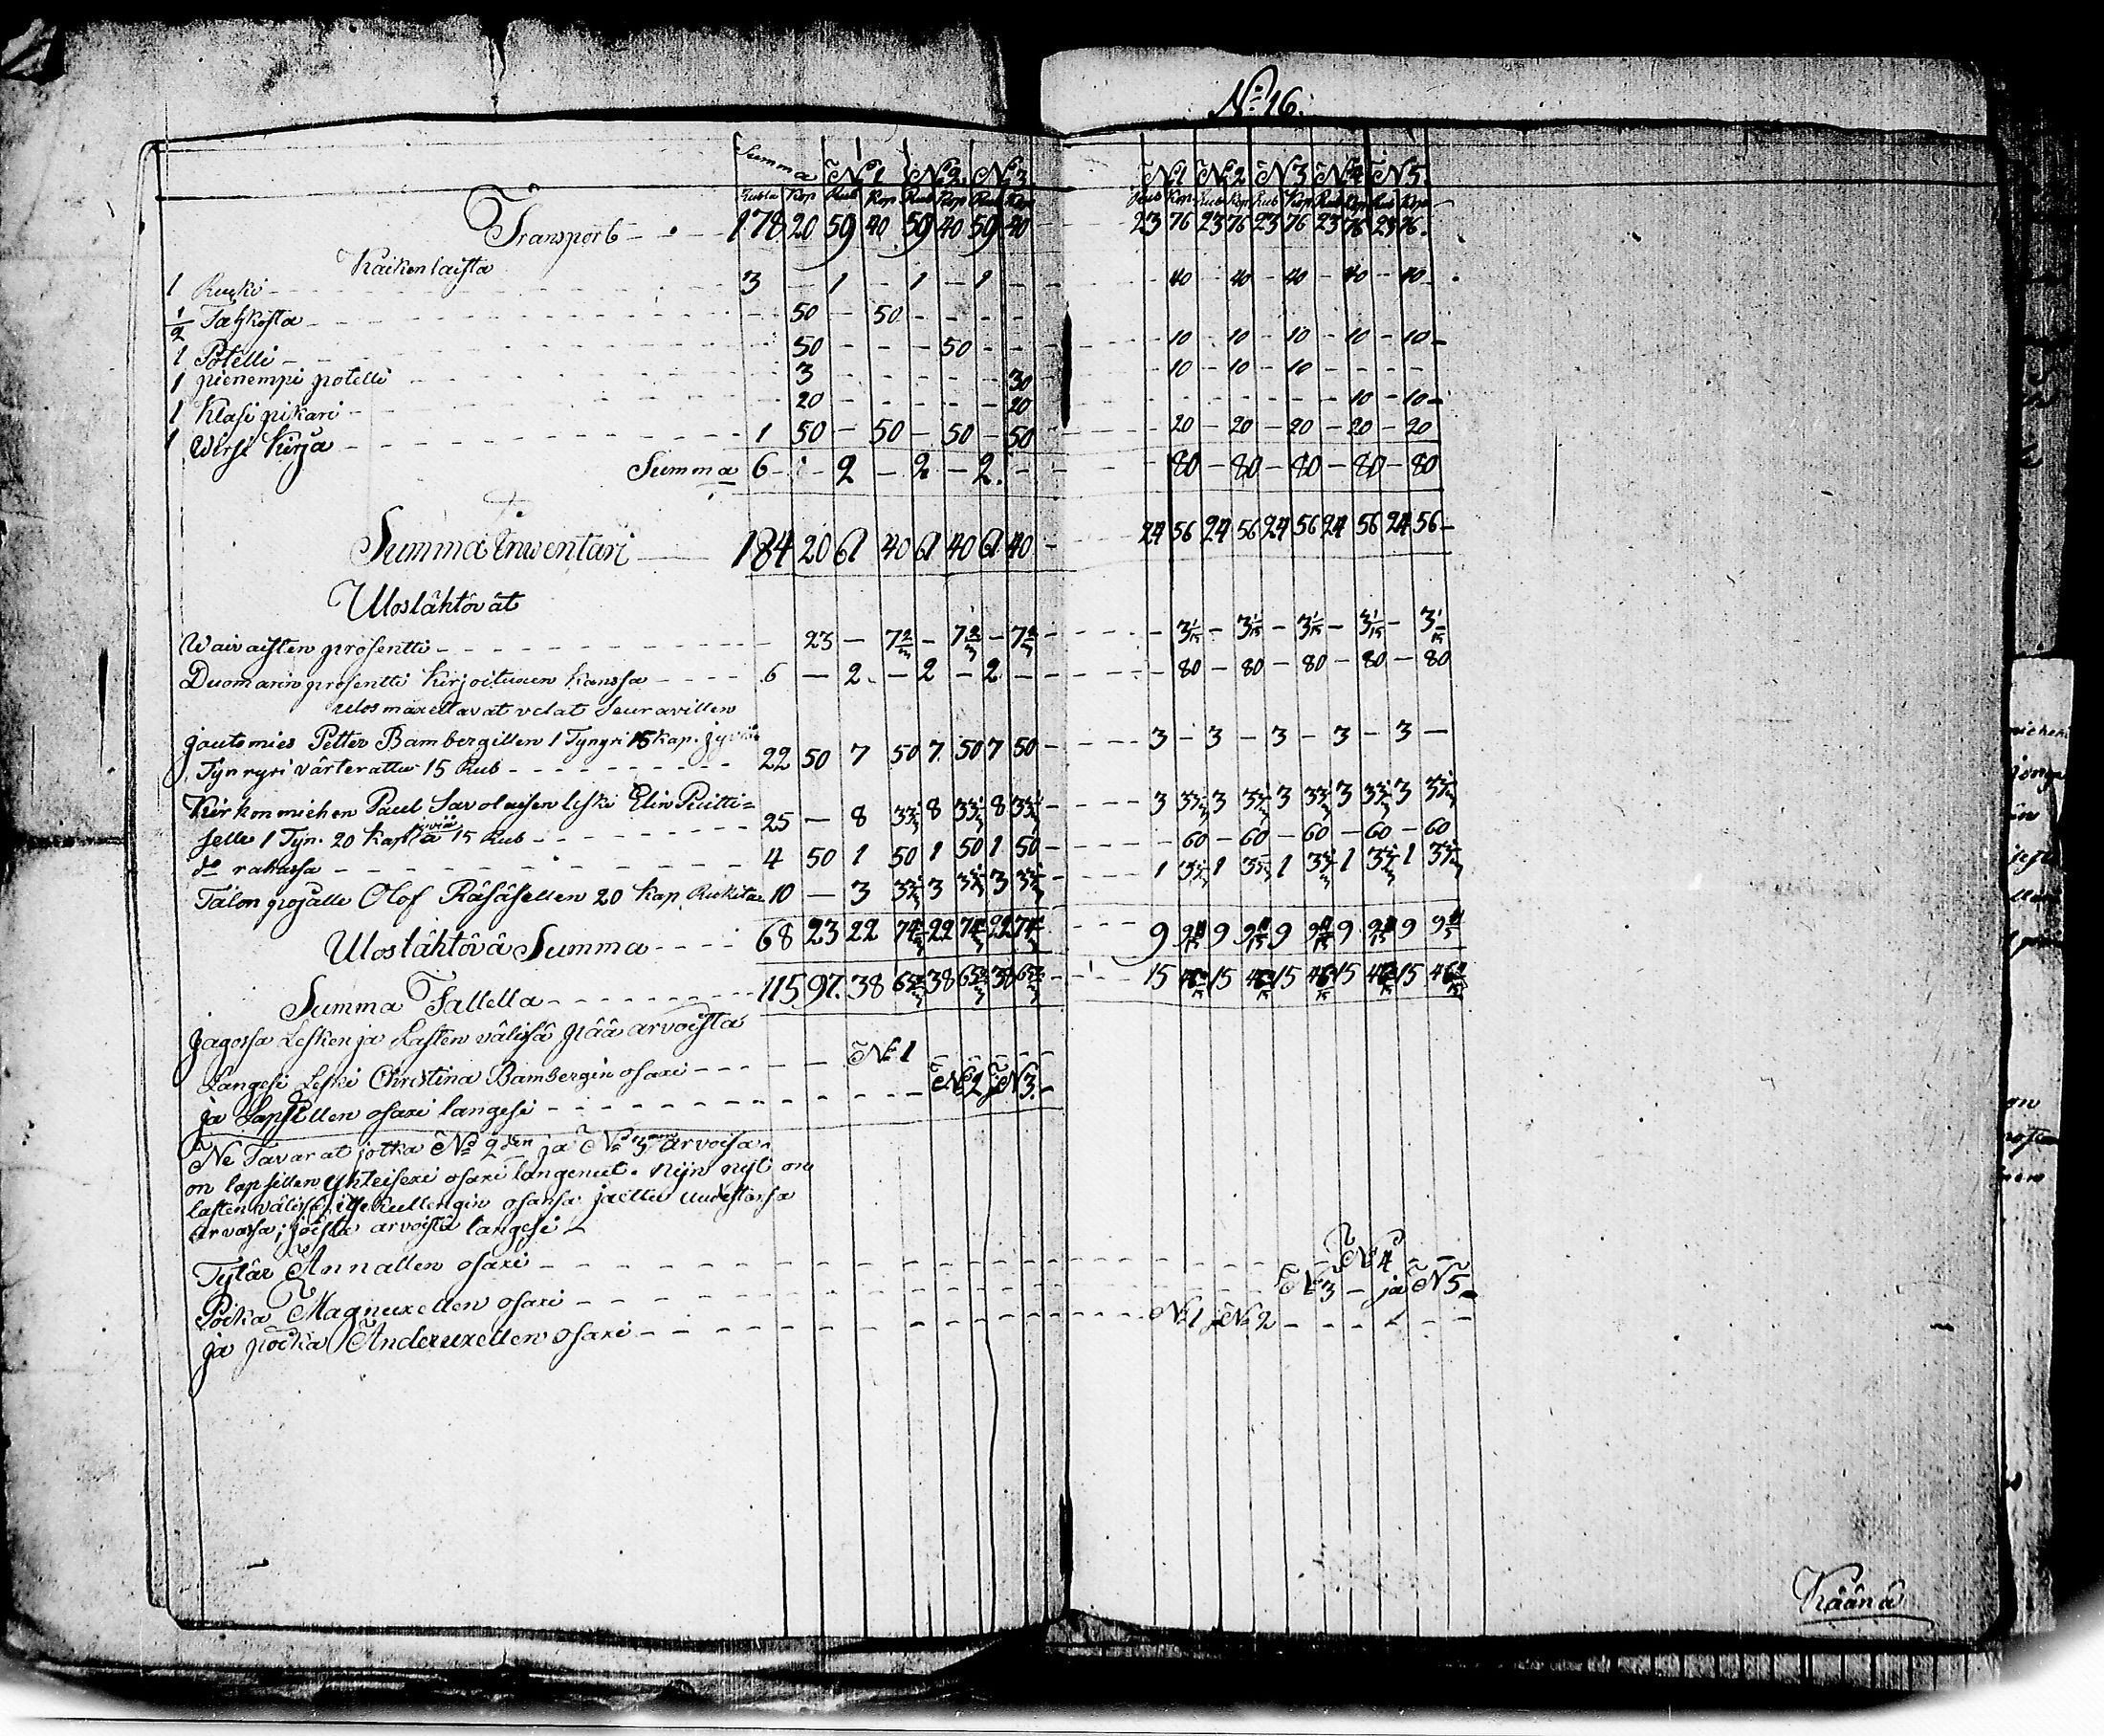 No 16.
Summa No 1 No 2 No 3 No 1 No 2 No 3 No 4 No 5.
Rubla Kop Rub Kop Rub Kop Rub Kop Rub Kop Rub Kop Rub Kop Rub Kop Rub Kop
Transport - - 178 20 59 40 59 40 59 40 - 23 76 23 76 23 76 23 76 23 76.
Kaikenlaista
1 Rucki - - - 3 - 1 - 1 - 1 - - - 40 - 40 - 40 - 40 - 40 -
1/2 Tahkosta - - - 50 - 50 - - - -
1 Potelli - - - 50 - - - 50 - - - 10 - 10 - 10 - 10 - 10 -
1 pienempi potelli - - - 3 - - - - - 30 - 10 - 10 - 10 - - - -
1 Klasi pikari - - - 20 - - - - - 20 - - - - - - 10 - 10 -
1 Wirsi Kirja - - - 1 50 - 50 - 50 - 50 - - 20 - 20 - 20 - 20 - 20
Summa 6 - - 2 - 2 - 2. - - - 80 - 80 - 80 - 80 - 80
Summa Inwentari 184 20 61 40 61 40 61 40 - 24 56 24 56 24 56 24 56 24 56 -
Uloslähtövät
Waivaisten prosentti - - - 23 - 7 2/3 - 7 2/3 - 7 2/3 - - - 3 1/15 - 3 1/15 - 3 1/15 - 3 1/15 - 3 1/15
Duomarin prosentti Kirjoituxen kanssa - - - 6 - 2 - 2 - 2 - - - 80 - 80 - 80 - 80 - 80
ulos maxettavat velat seuravillen
jautomies Petter Bambergillen 1 Tyngri 15 kap. jyviä
Tynryri värterattu 15 Rub - - - 22 50 7 50 7 50 7 50 - - - 3 - 3 - 3 - 3 - 3 -
Kirkonmiehen Paul Savolaisen leski Elin Puitti=
selle 1 Tyn. 20 Kap jviä a 15 Rub - - 25 - 8 33 1/3 8 33 1/3 8 33 1/3 - - - 3 33 1/3 3 33 1/3 3 33 1/3 3 33 1/3 3 33 1/3
do rahassa - - - 4 50 1 50 1 50 1 50 - - 60 - 60 - 60 - 60 - 60
Talon pojalle Olof Räsäsellen 20 Kap. Rukita 10 - 3 33 1/3 3 33 1/3 3 33 1/3 - - - 1 33 1/3 1 33 1/3 1 33 1/3 1 33 1/3 1 33 1/3
Uloslähtövä Summa - - - 68 23 22 74 1/3 22 74 1/3 22 74 1/3 - - - 9 9 11/15 9 9 11/15 9 9 11/15 9 9 11/15 9 9 11/15
Summa Tallella - - - 115 97. 38 65 2/3 38 65 2/3 38 65 2/3 - - 15 46 4/15 15 46 4/15 15 46 4/15 15 46 4/15 15 46 4/15
Jagossa Lesken ja Lasten välisä pää arvoista
Langesi Leski Christina Bambergin osaxi - - - No 1
ja Lapsillen osaxi langesi - - - No 2 ja N 3. -
Ne Tavarat jotka No 2den ja No 3men arvoisa
on lapsillen yhteisexi osaxi langenut. nijn nyt on
lasten välisä itze kullengin osansa jaettu uudestansa
arvossa; joista arvoista langesi
Tytär Annallen osaxi - - - No 4
Poika Magnuxellen osaxi - - - No 3 - ja N 5 -
ja poika Anderuxellen osaxi - - - No 1 ja No 2 - - -
Käänä